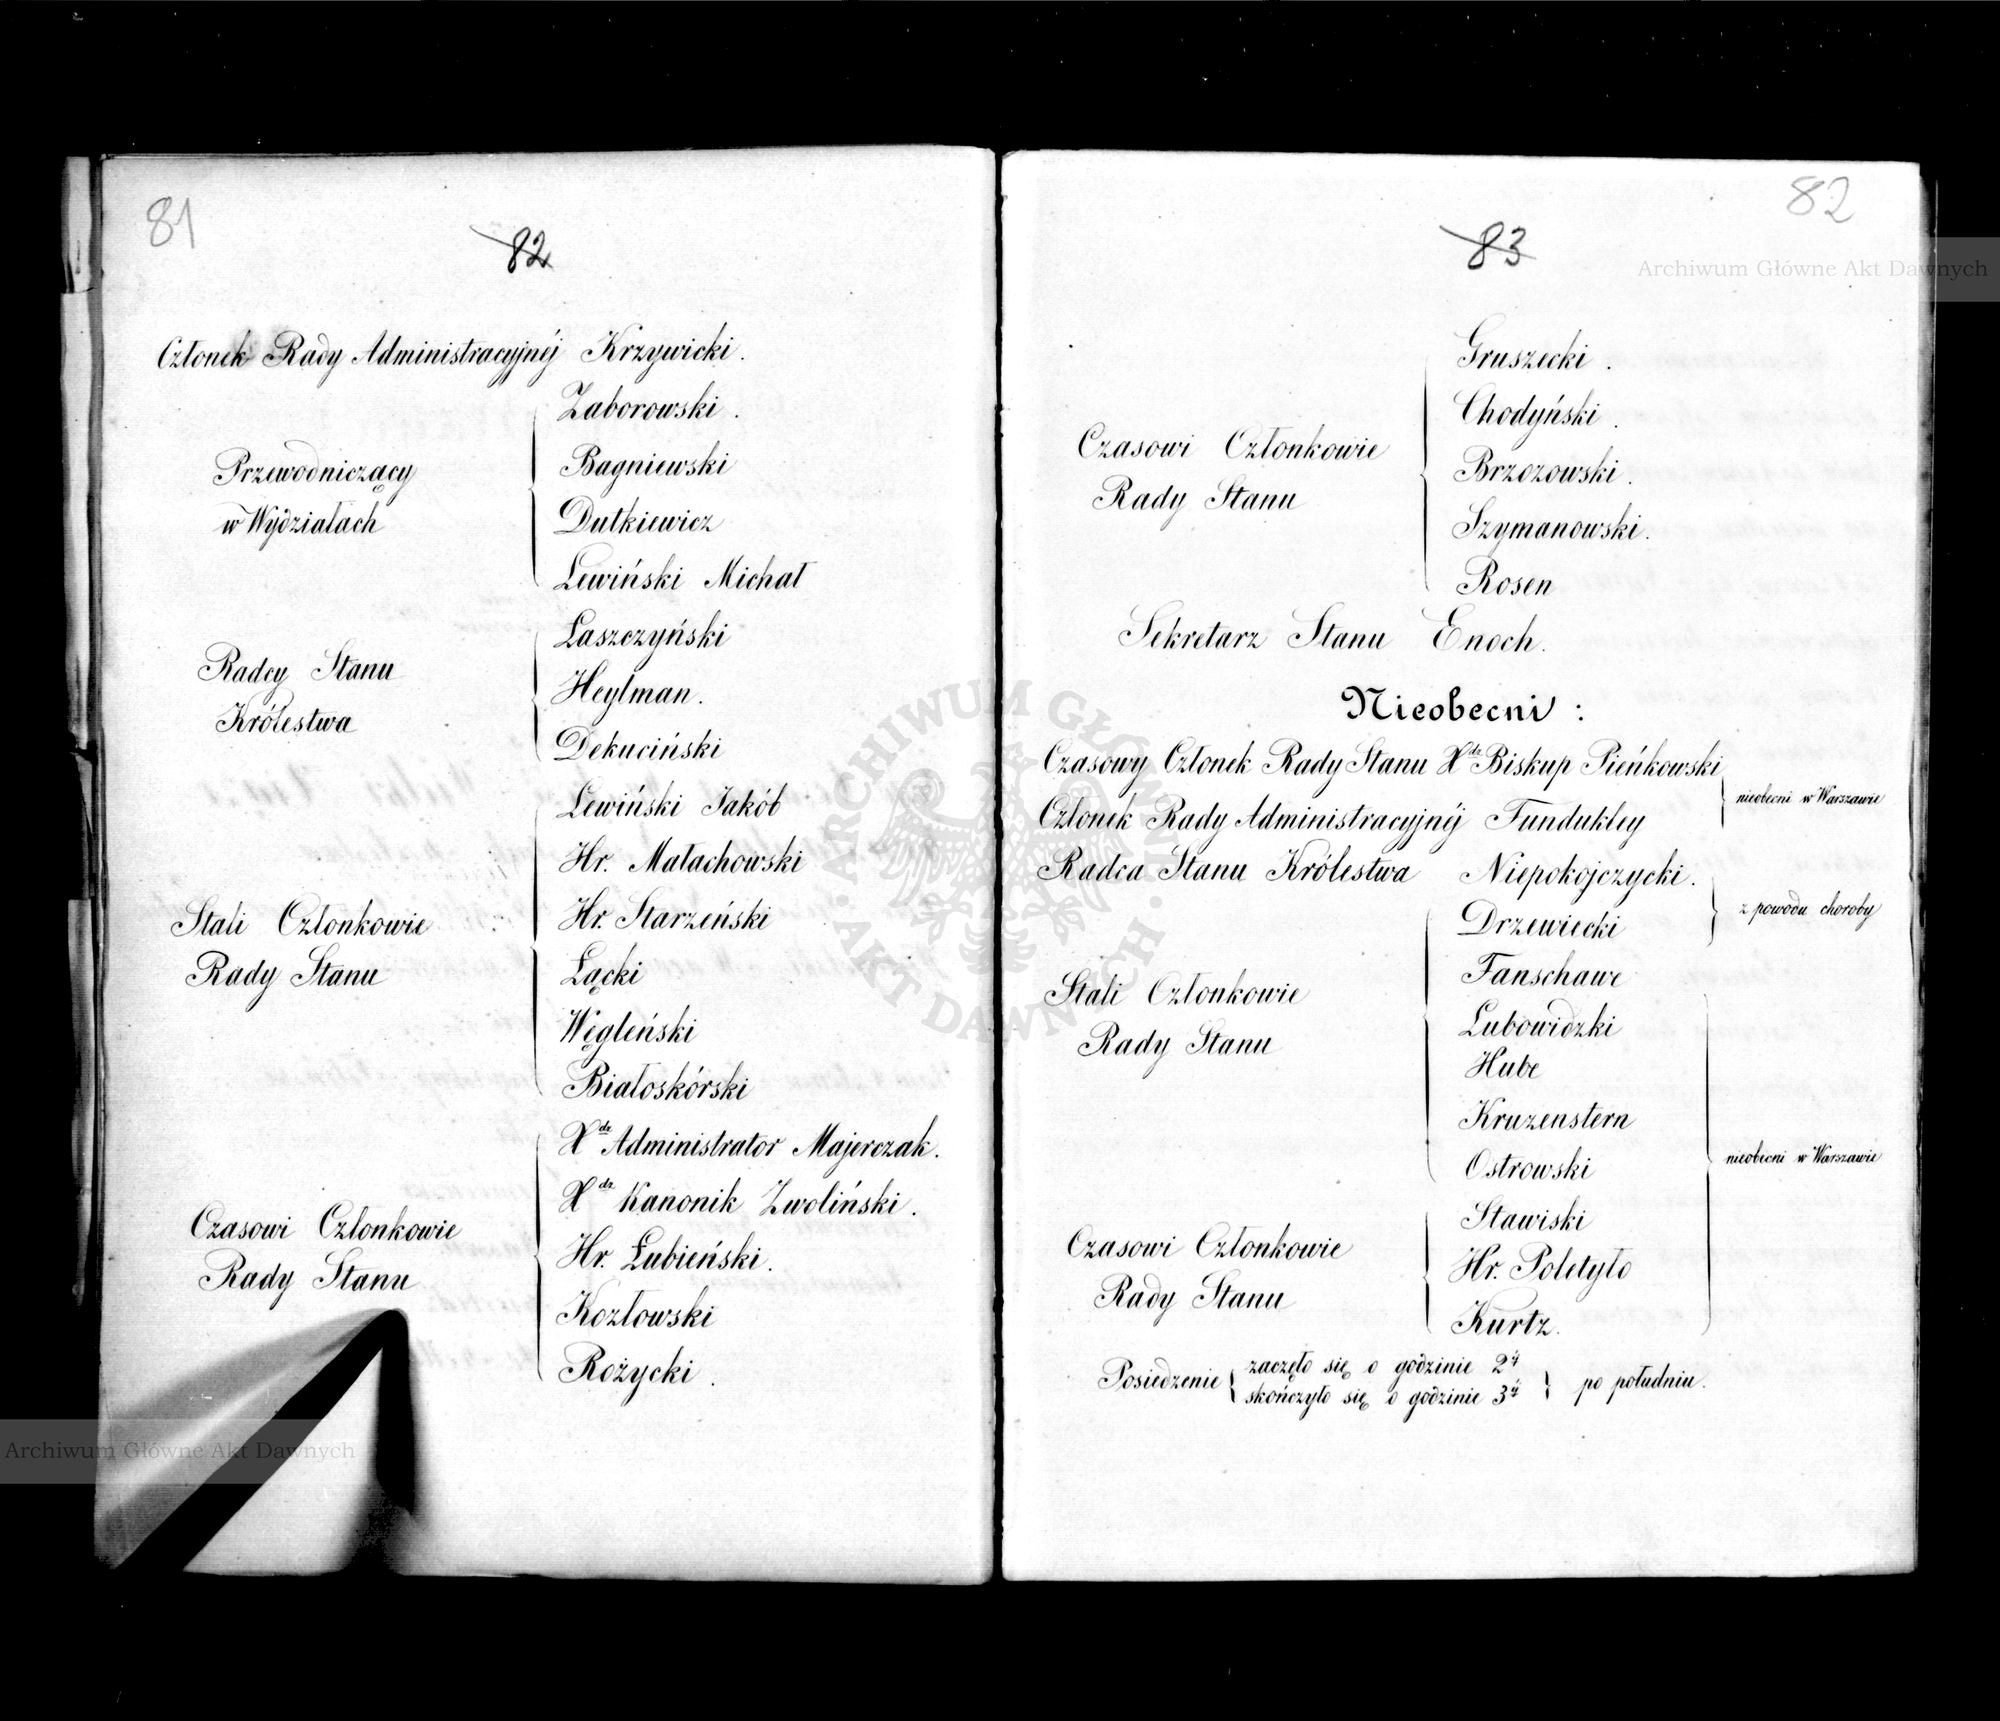 81
82
Członek Rady Administracyjnéj Krzywicki.
Przewodniczący
w Wydziałach
Zaborowski.
Bagniewski
Dutkiewicz
Lewiński Michał
Radcy Stanu
Królestwa
Łaszczyński
Heylman.
Dekuciński
Stali Członkowie
Rady Stanu
Lewiński Jakób
Hr. Małachowski
Hr. Starzeński
Łącki
Węgleński
Białoskórski
Czasowi Członkowie
Rady Stanu
Xdz Administrator Majerczak.
Xdz Kanonik Zwoliński.
Hr. Łubieński.
Kozłowski
Rożycki.
82
83
Czasowi Członkowie
Rady Stanu
Gruszecki.
Chodyński.
Brzozowski.
Szymanowski.
Rosen
Sekretarz Stanu Enoch.
Nieobecni:
Czasowy Członek Rady Stanu Xdz Biskup Pieńkowski
Członek Rady Administracyjnéj Fundukley
nieobecni w Warszawie
Radca Stanu Królestwa Niepokojczycki.
Stali Członkowie
Rady Stanu
Drzewiecki
z powodu choroby
Fanschawe
Lubowidzki
Hube
Kruzenstern
Ostrowski
nieobecni w Warszawie
Czasowi Członkowie
Rady Stanu
Stawiski
Hr. Poletyło
Kurtz.
Posiedzenie
zaczęło się o godzinie 2éj
skończyło się o godzinie 3éj
po południu.
Archiwum Główne Akt Dawnych
Archiwum Główne Akt Dawnych
ARCHIWUM GŁÓWNE AKT DAWNYCH